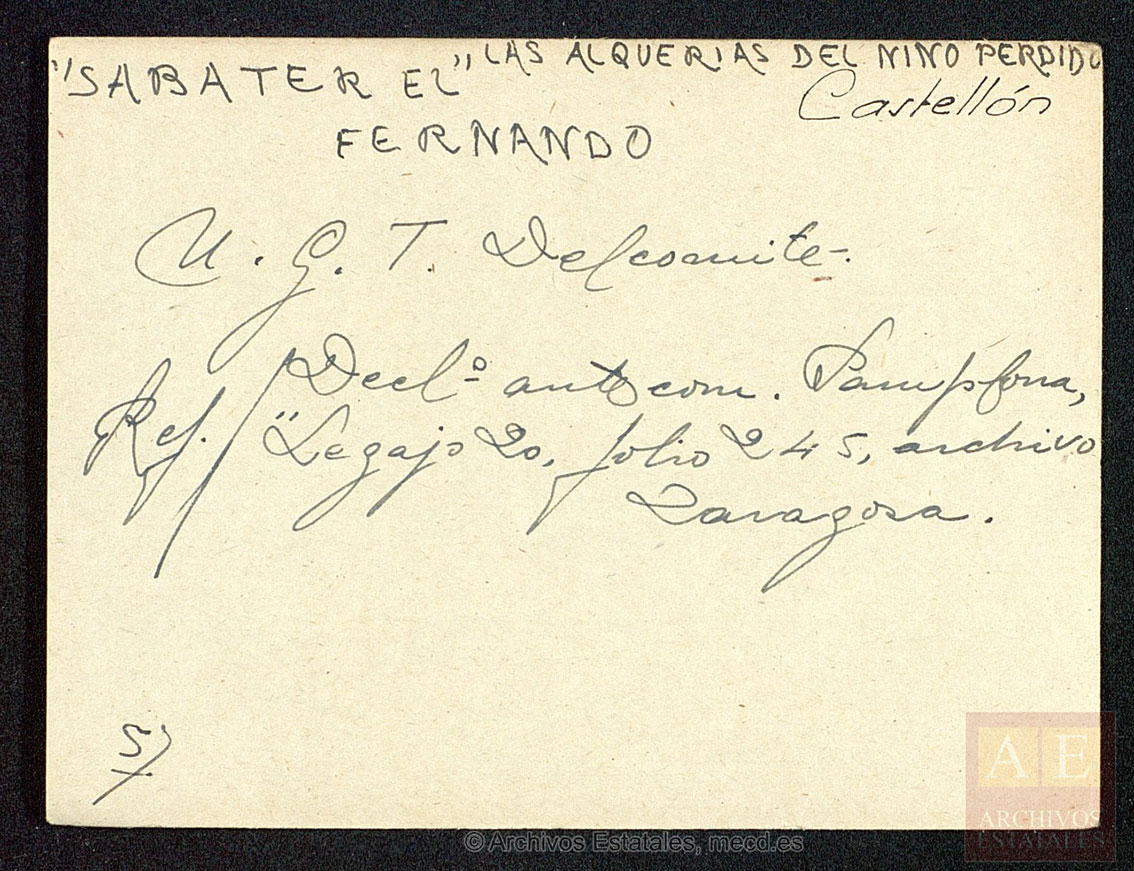 "SABATER EL" LAS ALQUERIAS DEL NINO PERDIDO
Castellón
FERNANDO
U. G. T. Delcomite-.
Declº ante com. Pamplona,
Ref. / "Legajo 20, folio 245, archivo
Zaragosa.
57
AE
ARCHIVOS
ESTATALES
© Archivos Estatales, mecd.es